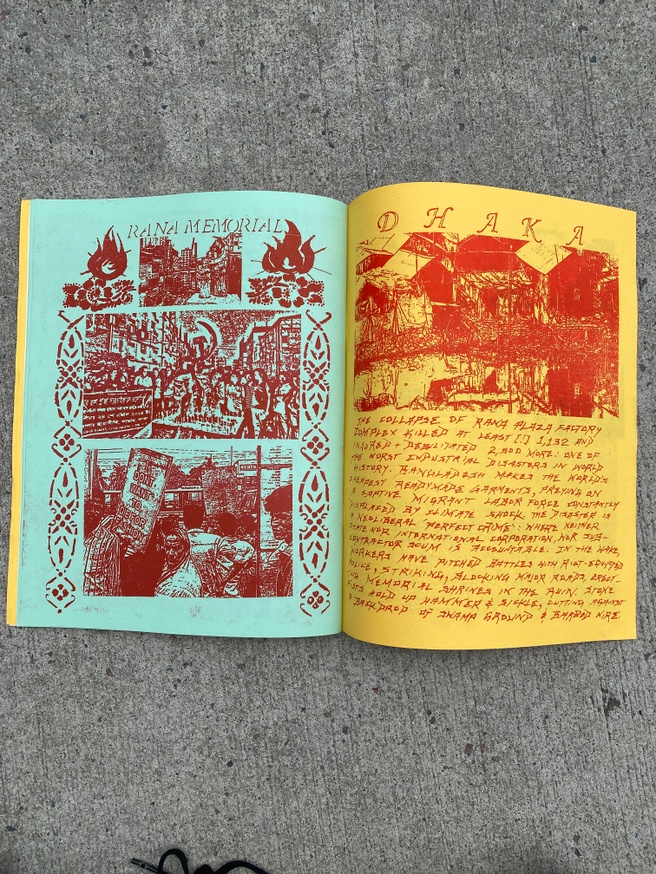 RANA MEMORIAL
DHAKA
THE COLLAPSE OF RANA PLAZA FACTORY
COMPLEX KILLED AT LEAST [!] 1,132 AND
INJURED + DEBILITATED 2,500 MORE: ONE OF
THE WORST INDUSTRIAL DISASTERS IN WORLD
HISTORY. BANGLADESH MAKES THE WORLD'S
CHEAPEST READYMADE GARMENTS, PREYING ON
A CAPTIVE MIGRANT LABOR FORCE CONSTANTLY
DISPLACED BY CLIMATE SHOCK. THE DISASTER IS
A NEOLIBERAL 'PERFECT CRIME': WHERE NEITHER
STATE NOR INTERNATIONAL CORPORATION, NOR SUB-
CONTRACTOR SCUM IS ACCOUNTABLE. IN THE WAKE,
WORKERS HAVE PITCHED BATTLES WITH RIOT-EQUIPPED
POLICE, STRIKING, BLOCKING MAJOR ROADS, ERECT-
ING MEMORIAL SHRINES IN THE RUIN. STONE
HOLD UP HAMMER & SICKLE, CUTTING AGAINST
A BACKDROP OF SWAMP GROUND & BARBED WIRE.